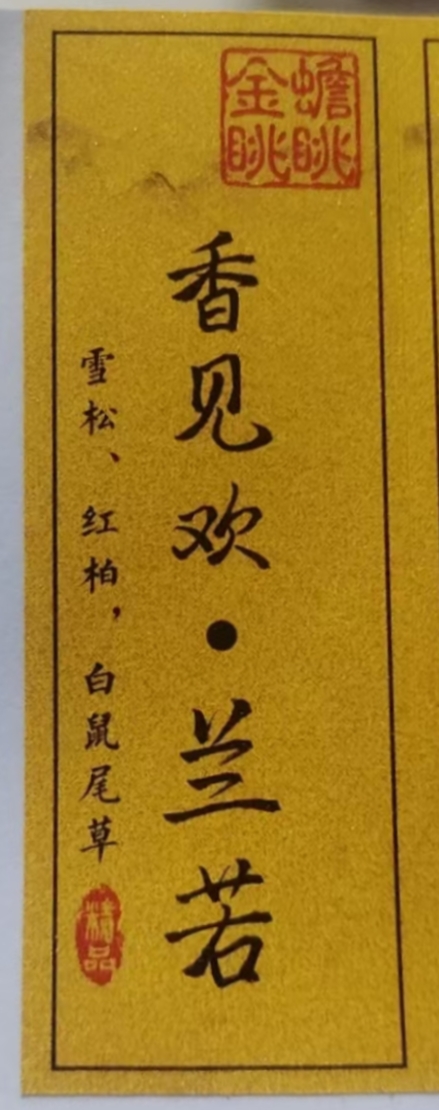 蟾眺
金眺
香见欢•兰若
雪松、红柏，白鼠尾草
精品